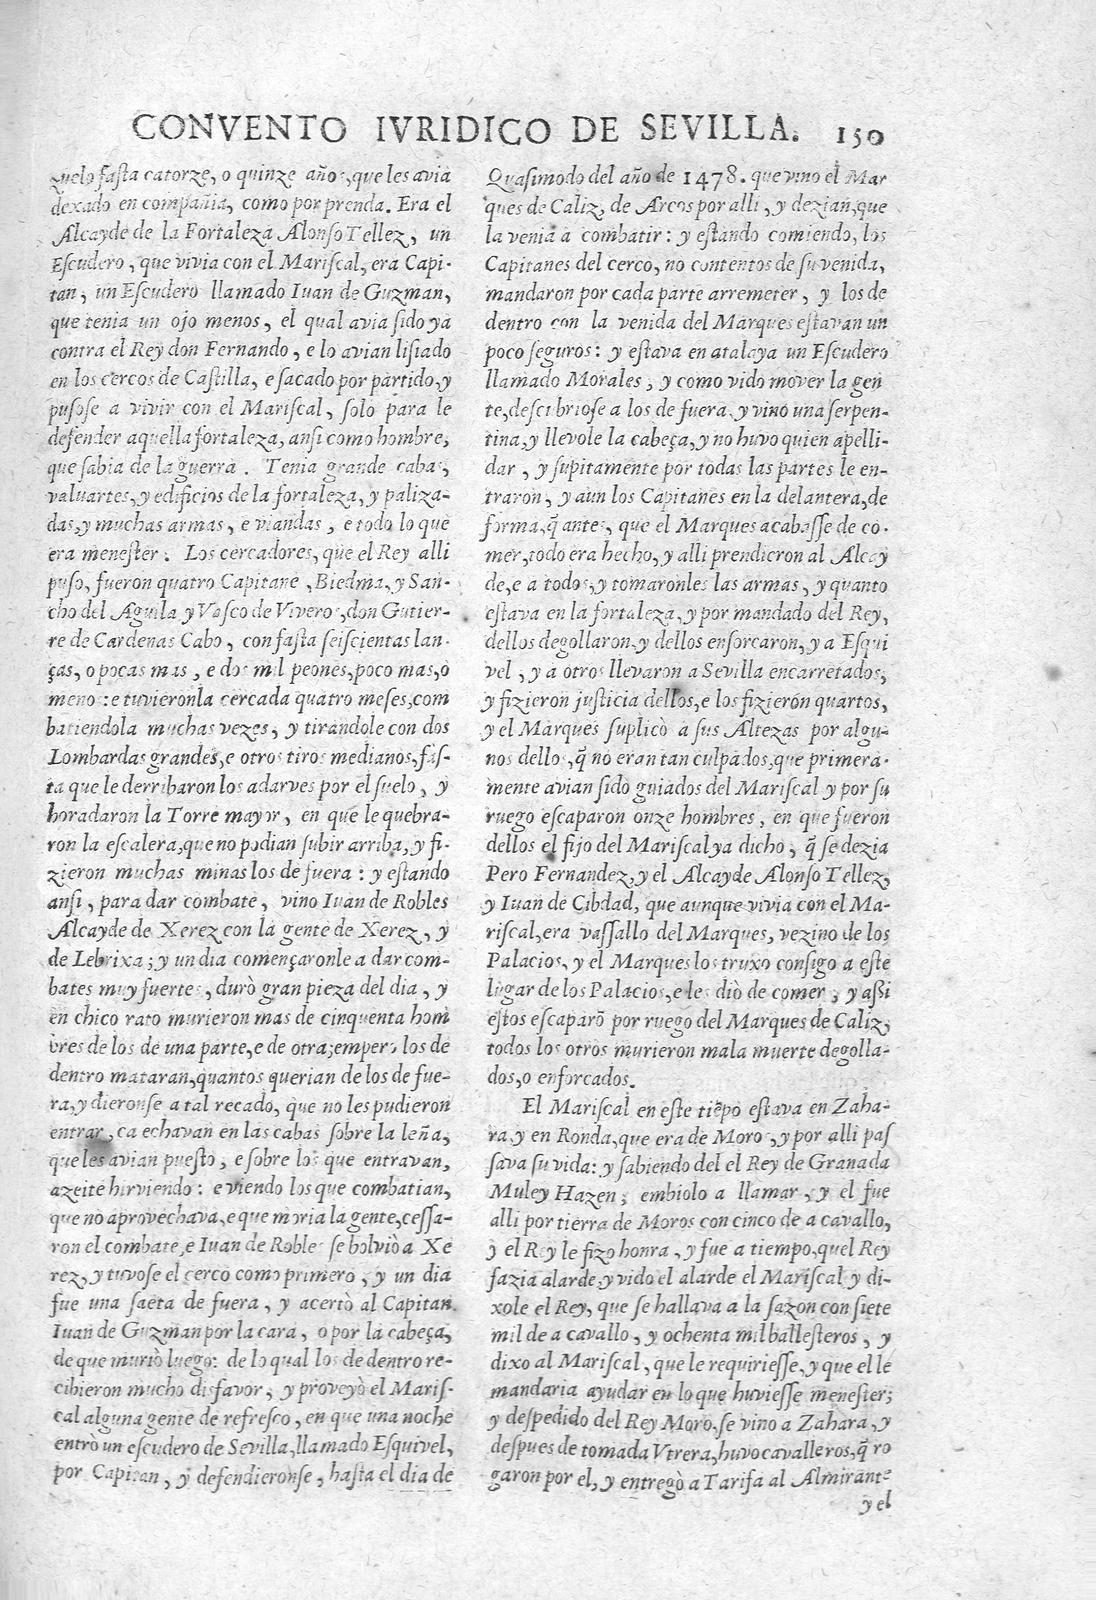 CONVENTO IVRIDICO DE SEVILLA. 150
zuelo fasta catorze, o quinze años, que les avia
dexado en compañia, como por prenda. Era el
Alcayde de la Fortaleza Alonso Tellez, un
Escudero, que vivia con el Mariscal, era Capi-
tan, un Escudero llamado Iuan de Guzman,
que tenia un ojo menos, el qual avia sido ya
contra el Rey don Fernando, e lo avian lisiado
en los cercos de Castilla, e sacado por partido, y
pusose a vivir con el Mariscal, solo para le
defender aquella fortaleza, ansi como hombre,
que sabia de la guerra. Tenia grande cabas,
valuartes, y edificios de la fortaleza, y paliza-
das, y muchas armas, e viandas, e todo lo que
era menester. Los cercadores, que el Rey alli
puso, fueron quatro Capitane, Biedma, y San-
cho del Aguila y Vasco de Vivero, don Gutier-
re de Cardenas Cabo, con fasta seiscientas lan-
ças, o pocas mas, e dos mil peones, poco mas, ò
menos: e tuvieronla cercada quatro meses, com
batiendola muchas vezes, y tirandole con dos
Lombardas grandes, e otros tiros medianos, fas-
ta que le derribaron los adarves por el suelo, y
horadaron la Torre mayor, en que le quebra-
ron la escalera, que no podian subir arriba, y fi-
zieron muchas minas los de fuera: y estando
ansi, para dar combate, vino Iuan de Robles
Alcayde de Xerez con la gente de Xerez, y
de Lebrixa; y un dia començaronle a dar com-
bates muy fuertes, durò gran pieza del dia, y
en chico rato murieron mas de cinquenta hom
bres de los de una parte, e de otra; empero los de
dentro mataran, quantos querian de los de fue-
ra, y dieronse a tal recado, que no les pudieron
entrar, ca echavan en las cabas sobre la leña,
que les avian puesto, e sobre los que entravan,
azeite hirviendo: e viendo los que combatian,
que no aprovechava, e que moria la gente, cessa-
ron el combate, e Iuan de Robles se bolviò a Xe
rez, y tuvose el cerco como primero, y un dia
fue una saeta de fuera, y acertò al Capitan
Iuan de Guzman por la cara, o por la cabeça,
de que muriò luego: de lo qual los de dentro re-
cibieron mucho disfavor, y proveyò el Maris-
cal alguna gente de refresco, en que una noche
entrò un escudero de Sevilla, llamado Esquivel,
por Capitan, y defendieronse, hasta el dia de
Quasimodo del año de 1478. que vino el Mar
ques de Caliz, de Arcos por alli, y dezian, que
la venia a combatir: y estando comiendo, los
Capitanes del cerco, no contentos de su venida,
mandaron por cada parte arremeter, y los de
dentro con la venida del Marques estavan un
poco seguros: y estava en atalaya un Escudero
llamado Morales, y como vido mover la gen
te, descubriose a los de fuera, y vino una serpen-
tina, y llevole la cabeça, y no huvo quien apelli-
dar, y supitamente por todas las partes le en-
traron, y aun los Capitanes en la delantera, de
forma, q̃ antes, que el Marques acabasse de co-
mer, todo era hecho, y alli prendieron al Alcay
de, e a todos, y tomaronles las armas, y quanto
estava en la fortaleza, y por mandado del Rey,
dellos degollaron, y dellos enforcaron, y a Esqui
vel, y a otros llevaron a Sevilla encarretados,
y fizieron justicia dellos, e los fizieron quartos,
y el Marques suplicò a sus Altezas por algu-
nos dellos, q̃ no eran tan culpados, que primera-
mente avian sido guiados del Mariscal y por su
ruego escaparon onze hombres, en que fueron
dellos el fijo del Mariscal ya dicho, q̃ se dezia
Pero Fernandez, y el Alcayde Alonso Tellez,
y Iuan de Cibdad, que aunque vivia con el Ma-
riscal, era vassallo del Marques, vezino de los
Palacios, y el Marques los truxo consigo a este
lugar de los Palacios, e les diò de comer, y assi
estos escaparõ por ruego del Marques de Caliz,
todos los otros murieron mala muerte degolla-
dos, o enforcados.
El Mariscal en este tiẽpo estava en Zaha-
ra, y en Ronda, que era de Moros, y por alli pas
sava su vida: y sabiendo del el Rey de Granada
Muley Hazen, embiolo a llamar, y el fue
alli por tierra de Moros con cinco de a cavallo,
y el Rey le fizo honra, y fue a tiempo, quel Rey
fazia alarde, y vido el alarde el Mariscal y di-
xole el Rey, que se hallava a la sazon con siete
mil de a cavallo, y ochenta mil ballesteros, y
dixo al Mariscal, que le requiriesse, y que el le
mandaria ayudar en lo que huviesse menester;
y despedido del Rey Moro, se vino a Zahara, y
despues de tomada Vtrera, huvo cavalleros, q̃ ro
garon por el, y entregò a Tarifa al Almirante
y el